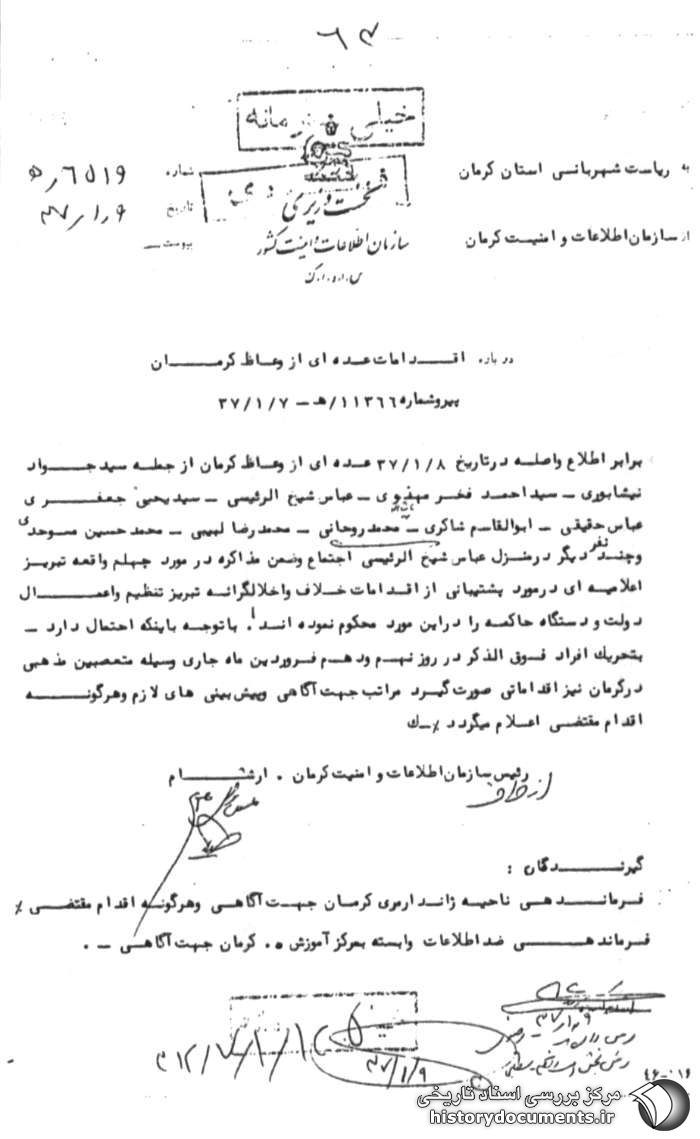 ۶۳
خیلی محرمانه
به ریاست شهربانی استان کرمان
شماره ۶۵۱۹/ه
نخست وزیری
تاریخ ۳۷/۱/۹
از سازمان اطلاعات و امنیت کرمان
سازمان اطلاعات و امنیت کشور
پیوست
س.ا.و.ا.ک
درباره اقدامات عده ای از وعاظ کرمان
پیرو شماره ۱۱۳۶۶/هـ – ۳۷/۱/۷
برابر اطلاع واصله درتاریخ ۳۷/۱/۸ عده ای از وعاظ کرمان از جمله سید جواد
نیشابوری – سید احمد فخر مهدوی – عباس شیخ الرئیسی – سید یحیی جعفری
عباس حقیقی – ابوالقاسم شاکری – محمد روحانی – محمد رضا لبیبی – محمد حسین موحدی
وچند نفر دیگر درمنزل عباس شیخ الرئیسی اجتماع وضمن مذاکره در مورد چهلم واقعه تبریز
اعلامیه ای درمورد پشتیبانی از اقدامات خلاف واخلالگرانه تبریز تنظیم واعمال
دولت و دستگاه حاکمه را دراین مورد محکوم نموده اند. باتوجه باینکه احتمال دارد –
بتحریک افراد فوق الذکر در روز نهم ودهم فروردین ماه جاری وسیله متعصبین مذهبی
درکرمان نیز اقداماتی صورت گیرد مراتب جهت آگاهی وپیش بینی های لازم وهرگونه
اقدام مقتضی اعلام میگردد ٪ – ک
رئیس سازمان اطلاعات و امنیت کرمان . آرشام
از طرف
گیرندگان :
فرماندهی ناحیه ژاندارمری کرمان جهت آگاهی وهرگونه اقدام مقتضی ٪
فرماندهی ضد اطلاعات وابسته بمرکز آموزش ۰۵ کرمان جهت آگاهی – .
۳۷/۱/۹
۳۷/۱/۹
۱۱۶-۴۶
مرکز بررسی اسناد تاریخی
historydocuments.ir